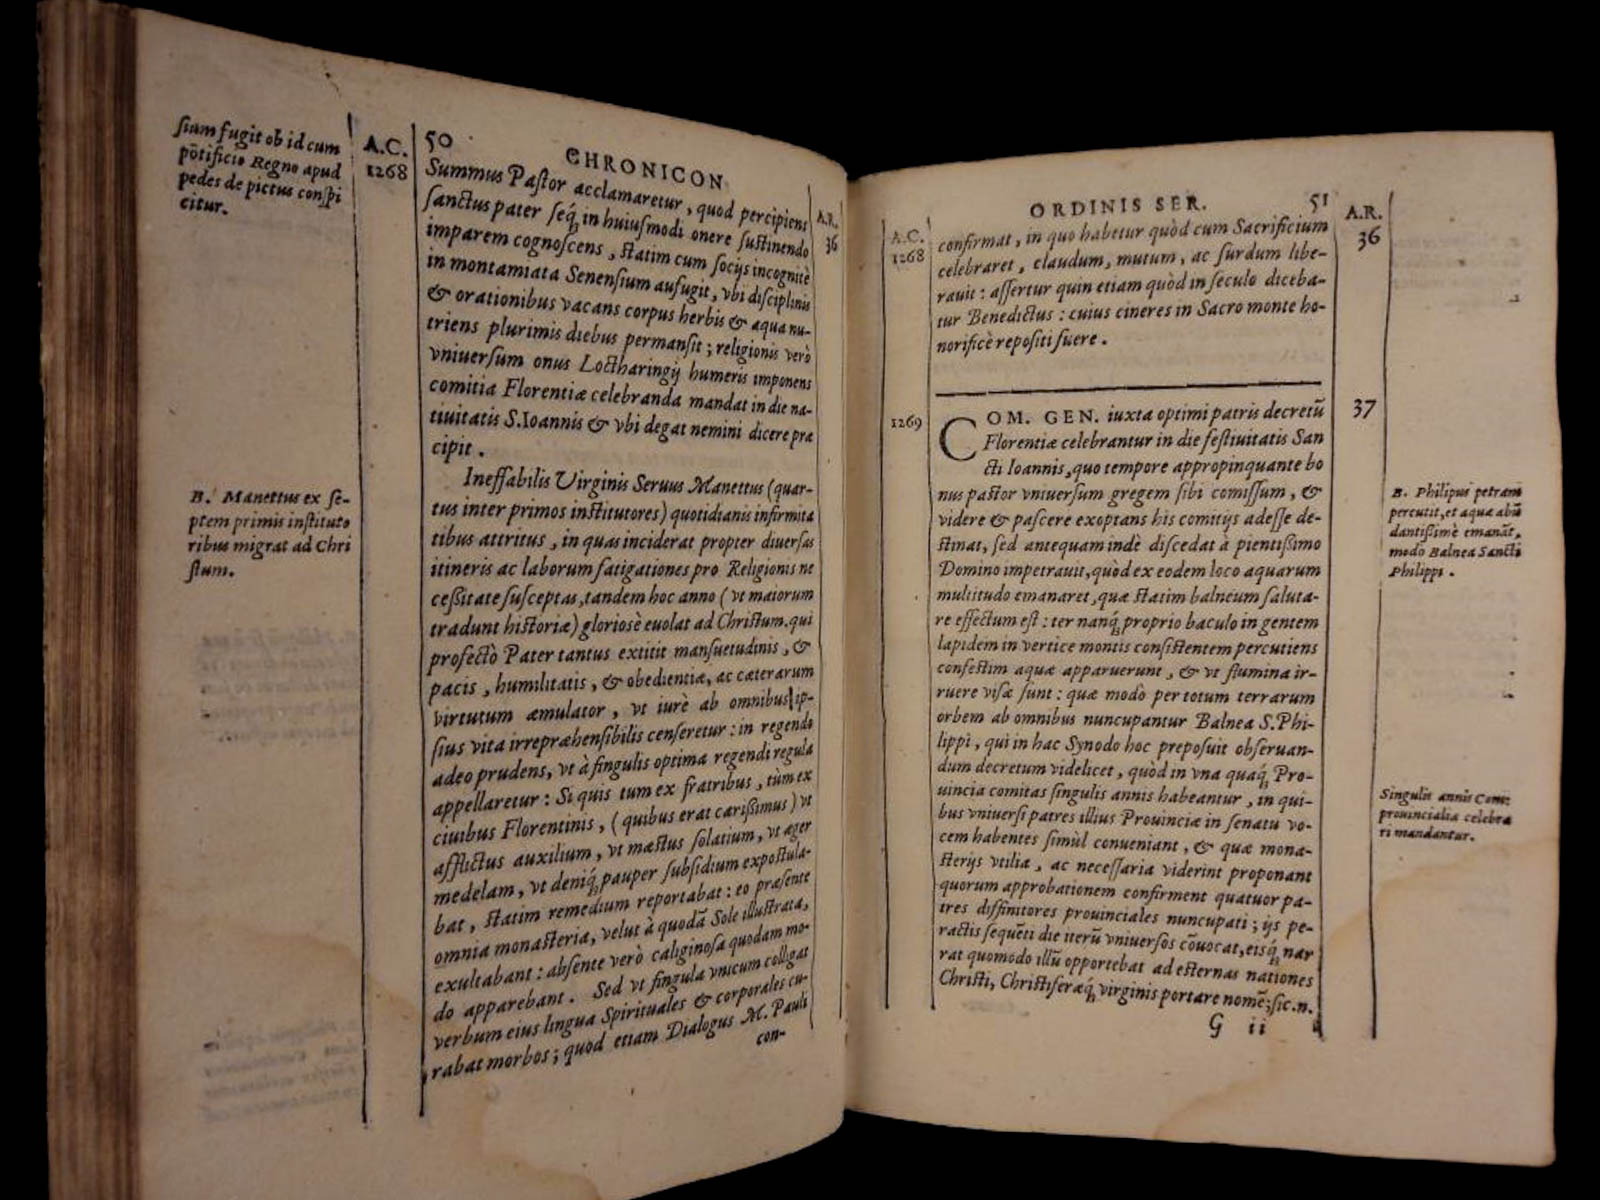 ſiam fugit ob id cum
põtificio Regno apud
pedes de pictus conſpi
citur.
A.C.
1268
50
CHRONICON
A.R.
36
Summus Paſtor acclamaretur, quod percipiens
ſanctus pater ſeq́; in huiuſmodi onere ſuſtinendo
imparem cognoſcens, ſtatim cum ſocijs incognitè
in montamiata Senenſium aufugit, vbi diſciplinis
& orationibus vacans corpus herbis & aqua nu-
triens plurimis diebus permanſit; religionis verò
vniuerſum onus Loctharingij humeris imponens
comitia Florentiæ celebranda mandat in die na-
tiuitatis S. Ioannis & vbi degat nemini dicere præ
cipit.
Ineffabilis Virginis Seruus Manettus (quar-
tus inter primos inſtitutores) quotidianis infirmita
tibus attritus, in quas inciderat propter diuerſas
itineris ac laborum fatigationes pro Religionis ne
ceßitate ſuſceptas, tandem hoc anno (vt maiorum
tradunt hiſtoriæ) glorioſè euolat ad Chriſtum. qui
profectò Pater tantus extitit manſuetudinis, &
pacis, humilitatis, & obedientiæ, ac cæterarum
virtutum æmulator, vt iurè ab omnibus ip-
ſius vita irrepræhenſibilis cenſeretur: in regendo
adeo prudens, vt à ſingulis optima regendi regula
appellaretur: Si quis tum ex fratribus, tùm ex
ciuibus Florentinis, (quibus erat carißimus) vt
afflictus auxilium, vt mæſtus ſolatium, vt æger
medelam, vt deniq́; pauper ſubſidium expoſtula-
bat, ſtatim remedium reportabat: eo præſente
omnia monaſteria, velut à quodã Sole illuſtrata,
exultabant: abſente verò caliginoſa quodam mo-
do apparebant. Sed vt ſingula vnicum colligat
verbum eius lingua Spirituales & corporales cu-
rabat morbos; quod etiam Dialogus M. Pauli
con-
B. Manettus ex ſe-
ptem primis inſtituto
ribus migrat ad Chri
ſtum.
ORDINIS SER.
51
A.C.
1268
A.R.
36
confirmat, in quo habetur quòd cum Sacrificium
celebraret, claudum, mutum, ac ſurdum libe-
rauit: aſſertur quin etiam quòd in ſeculo diceba-
tur Benedictus: cuius cineres in Sacro monte ho-
norificè repoſiti fuere.
1269
37
COM. GEN. iuxta optimi patris decretũ
Florentiæ celebrantur in die feſtiuitatis San
cti Ioannis, quo tempore appropinquante bo
nus paſtor vniuerſum gregem ſibi comiſſum, &
videre & paſcere exoptans his comitijs adeſſe de-
ſtinat, ſed antequam indè diſcedat à pientißimo
Domino impetrauit, quòd ex eodem loco aquarum
multitudo emanaret, quæ ſtatim balneum ſaluta-
re effectum eſt: ter nanq́; proprio baculo ingentem
lapidem in vertice montis conſiſtentem percutiens
confeſtim aquæ apparuerunt, & vt flumina ir-
ruere viſæ ſunt: quæ modò per totum terrarum
orbem ab omnibus nuncupantur Balnea S. Phi-
lippi, qui in hac Synodo hoc prepoſuit obſeruan-
dum decretum videlicet, quòd in vna quaq́; Pro-
uincia comitas ſingulis annis habeantur, in qui-
bus vniuerſi patres illius Prouinciæ in ſenatu vo-
cem habentes ſimùl conueniant, & quæ mona-
ſterijs vtilia, ac neceſſaria viderint proponant
quorum approbationem confirment quatuor pa-
tres diffinitores prouinciales nuncupati; ijs pe-
ractis ſequẽti die iterũ vniuerſos cõuocat, eisq́; nar
rat quomodo illũ opportebat ad eſternas nationes
Chriſti, Chriſtiferæq́; virginis portare nomẽ; ſic .n.
G ii
B. Philipus petram
percutit, et aquæ abũ
dantiſſimè emanãt,
modo Balnea Sancti
Philippi.
Singulis annis Comi
prouincialia celebra
ri mandantur.